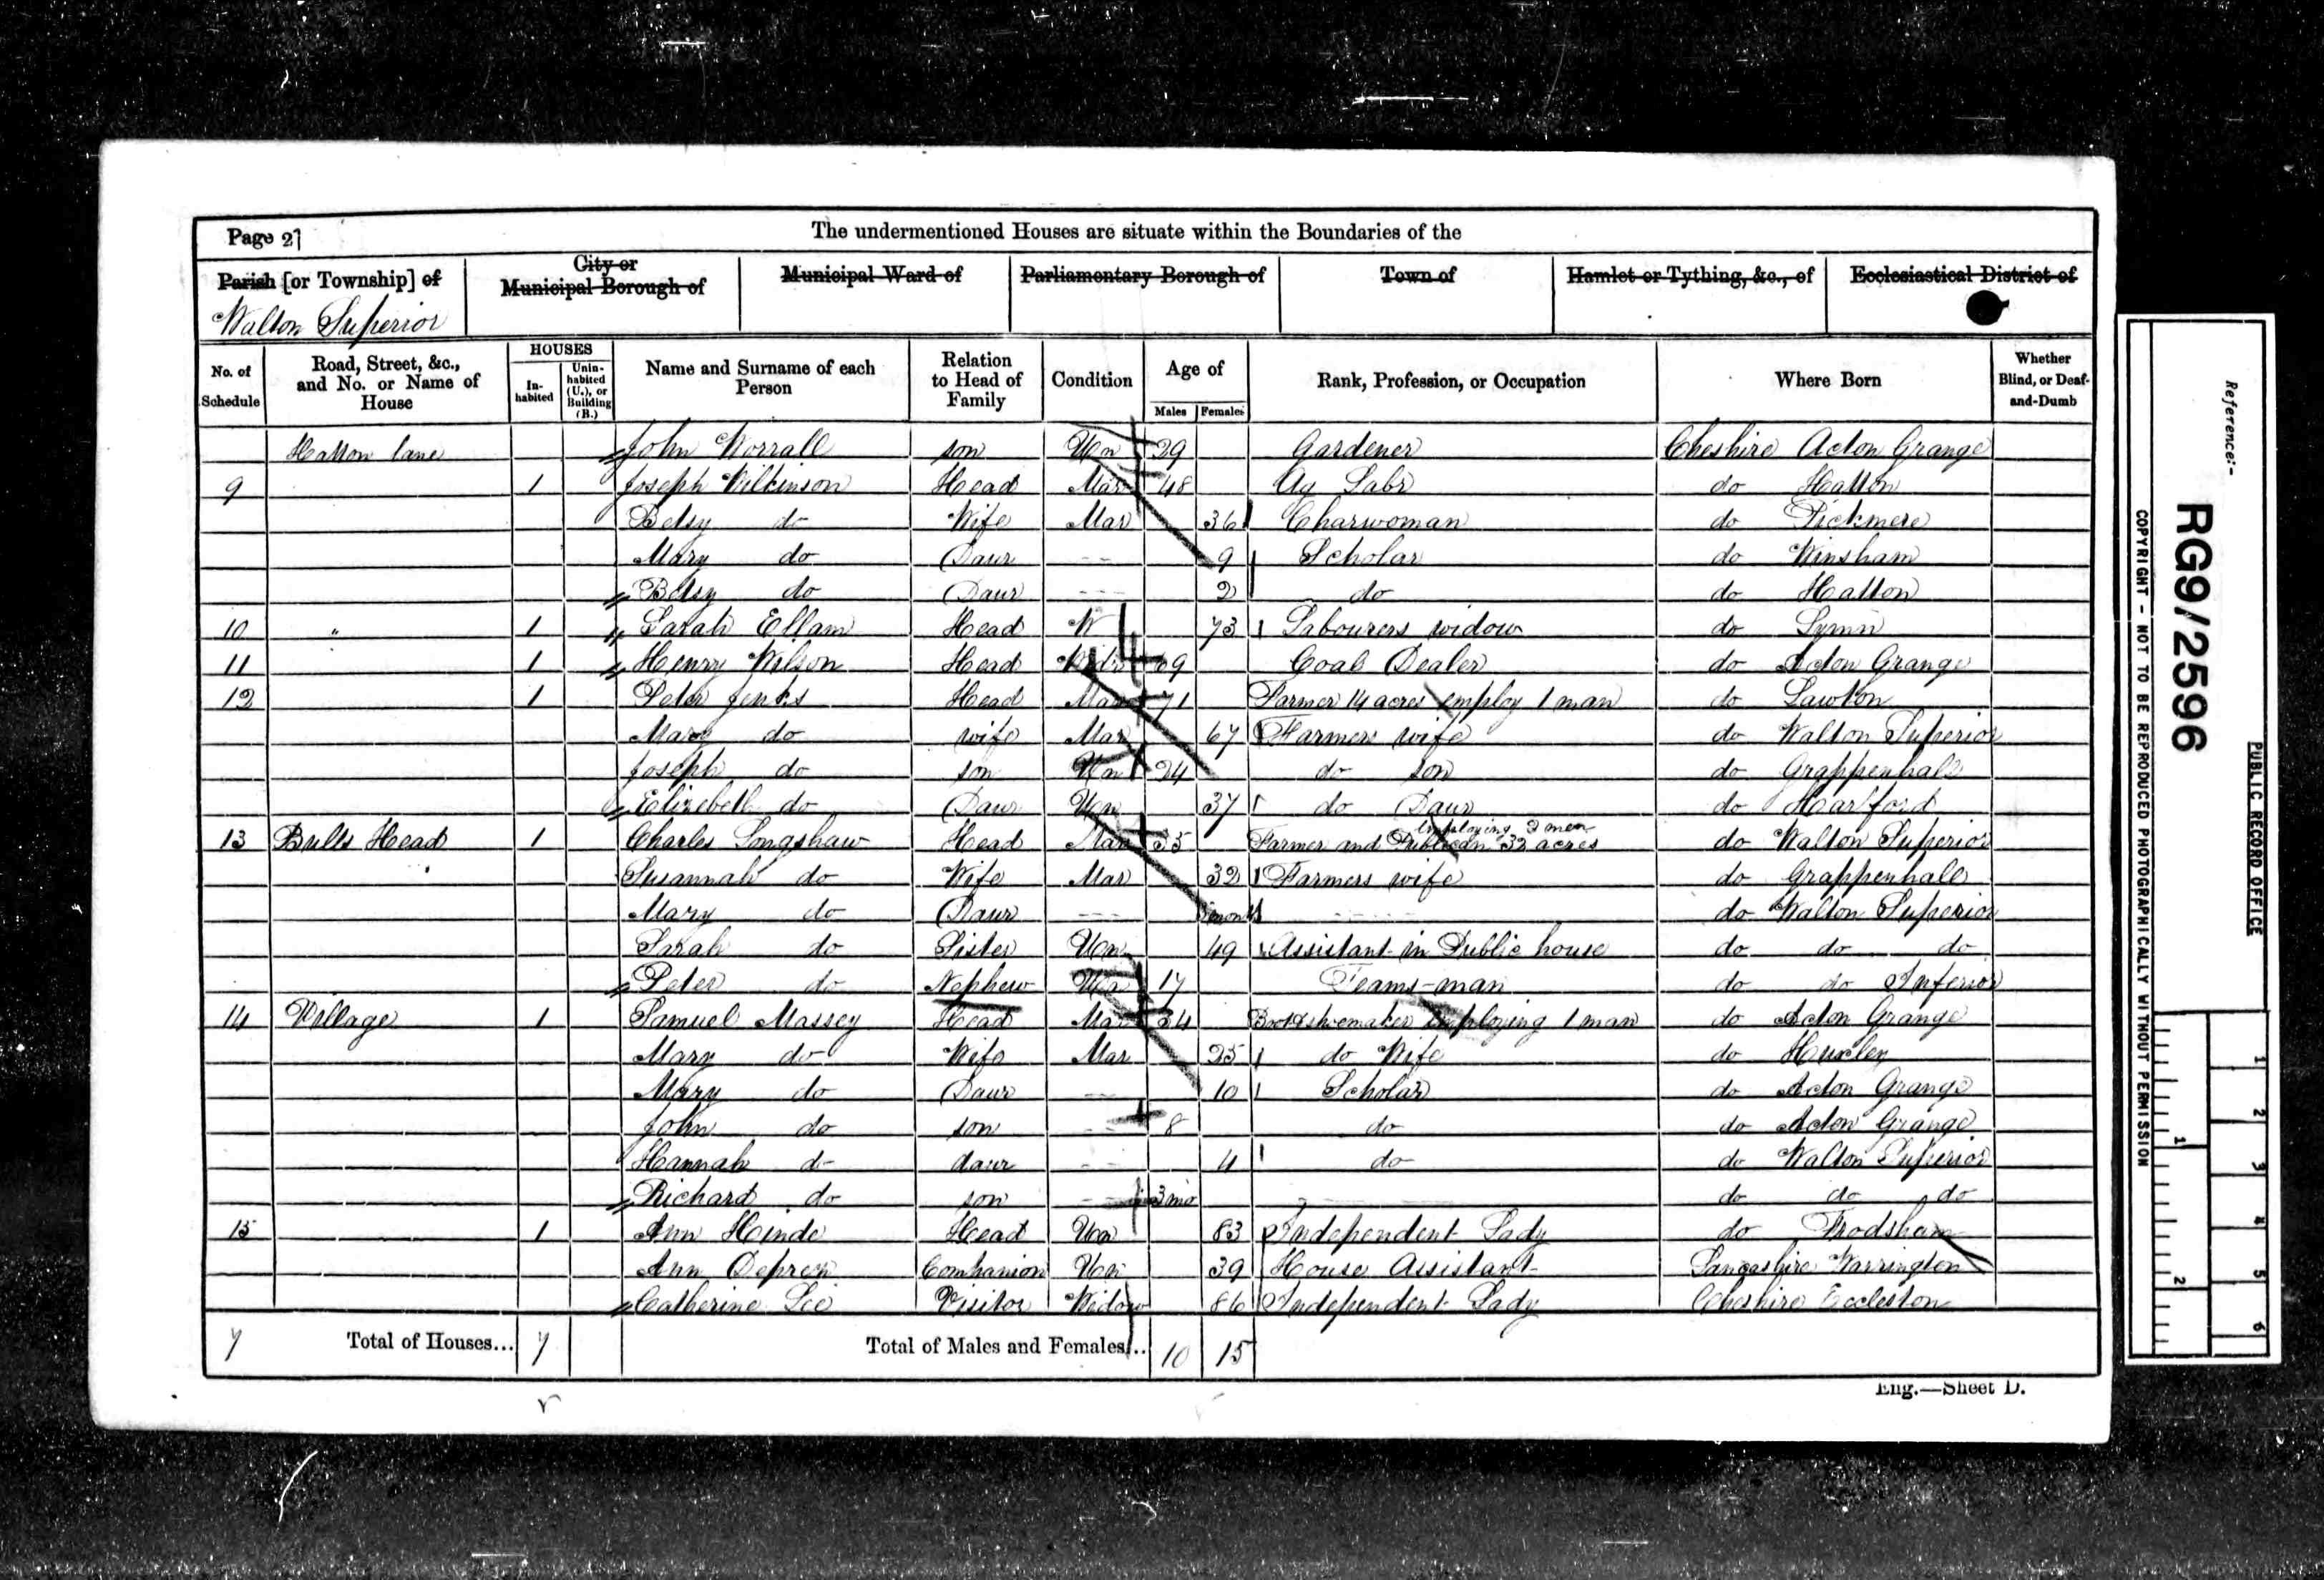 Page 2]
The undermentioned Houses are situate within the Boundaries of the
Parish [or Township] of
Walton Superior
City or
Municipal Borough of
Municipal Ward of
Parliamentary Borough of
Town of
Hamlet or Tything, &c., of
Ecclesiastical District of
No. of Schedule
Road, Street, &c., and No. or Name of House
HOUSES
In-habited
Unin-habited (U.), or Building (B.)
Name and Surname of each Person
Relation to Head of Family
Condition
Age of
Males
Females
Rank, Profession, or Occupation
Where Born
Whether Blind, or Deaf-and-Dumb
Hatton lane John Worrall son Un 29 Gardener Cheshire Acton Grange
9 1 Joseph Wilkinson Head Mar 48 Ag Labr do Hatton
Betsy do Wife Mar 36 Charwoman do Pickmere
Mary do Daur -- 9 Scholar do Winsham
Betsy do Daur --- 2 do do Hatton
10 " 1 Sarah Ellam Head W 73 Labourers widow do Lymn
11 1 Henry Wilson Head Widr 69 Coal Dealer do Acton Grange
12 1 Peter Jenks Head Mar 71 Farmer 14 acres employ 1 man do Lawton
Mary do wife Mar 67 Farmers wife do Walton Superior
Joseph do son Un 24 do son do Grappenhall
Elizebeth do Daur Un 37 do Daur do Harford
13 Bulls Head 1 Charles Longshaw Head Mar 35 Farmer and Publican 32 acres employing 2 men do Walton Superior
Susannah do Wife Mar 32 Farmers wife do Grappenhall
Mary do Daur --- months do Walton Superior
Sarah do Sister Un 49 Assistant in Public house do do do
Peter do Nephew Un 17 Teams-man do do Inferior
14 Village 1 Samuel Massey Head Mar 34 Boot & shoemaker employing 1 man do Acton Grange
Mary do Wife Mar 35 do Wife do Huxley
Mary do Daur -- 10 Scholar do Acton Grange
John do son -- 8 do do Acton Grange
Hannah do daur -- 4 do do Walton Superior
Richard do son -- 3 mo do do do
15 1 Ann Hinde Head Un 83 Independent Lady do Frodsham
Ann Companion Un 39 House Assistant Lancashire Warrington
Catherine Lee Visitor Widow 86 Independent Lady Cheshire Eccleston
7 Total of Houses... 7 Total of Males and Females... 10 15
Eng.—Sheet D.
Reference:-
RG9/2596
PUBLIC RECORD OFFICE
COPYRIGHT - NOT TO BE REPRODUCED PHOTOGRAPHICALLY WITHOUT PERMISSION
1
2
1
2
3
4
5
6